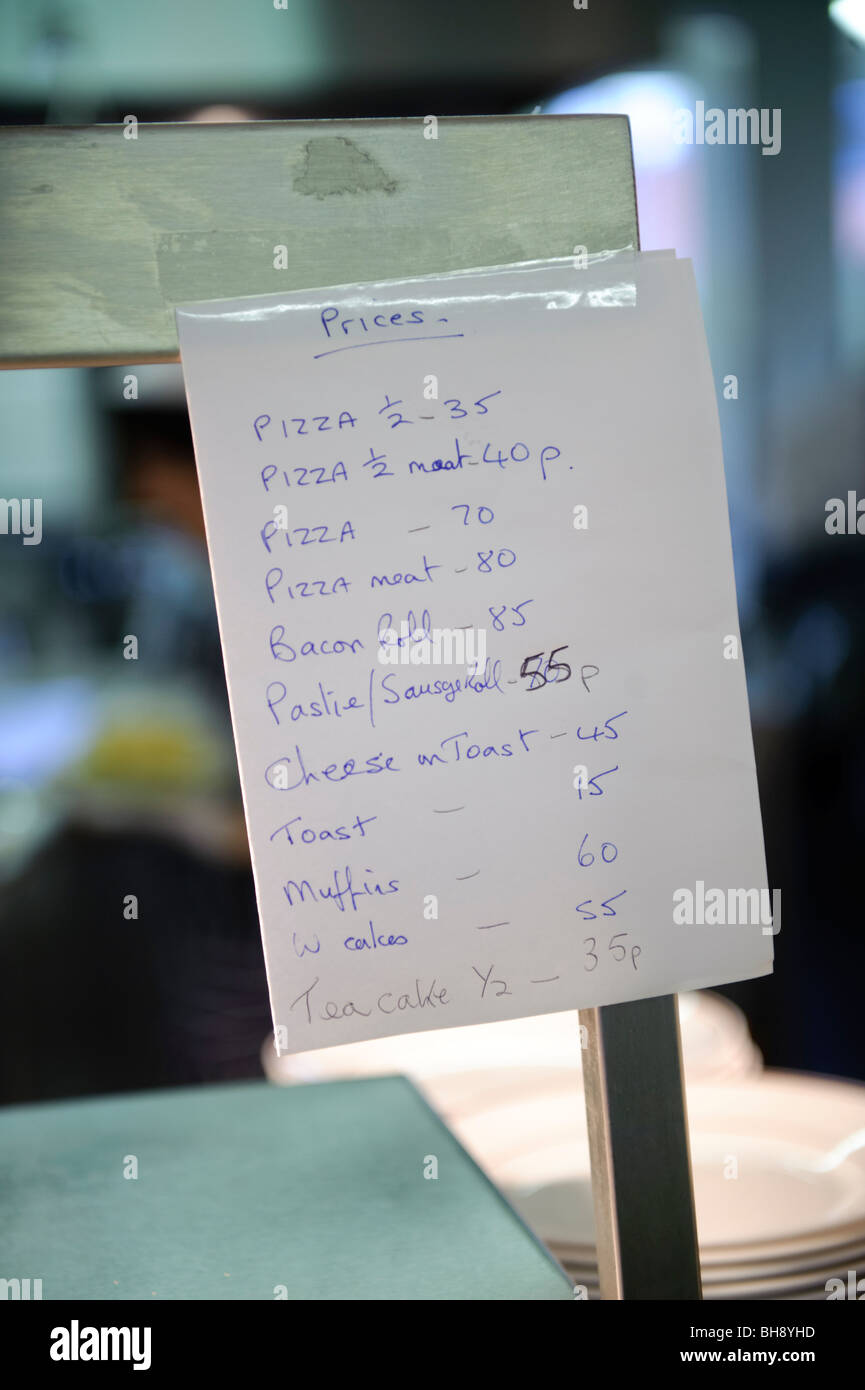 Prices.
PIZZA ½ - 35
PIZZA ½ meat - 40p.
PIZZA - 70
PIZZA meat - 80
Bacon Roll - 85
Pastie/Sausge Roll - 55p
Cheese on Toast - 45
Toast - 15
Muffins - 60
W cakes - 55
Tea cake ½ - 35p
alamy
Image ID: BH8YHD
www.alamy.com